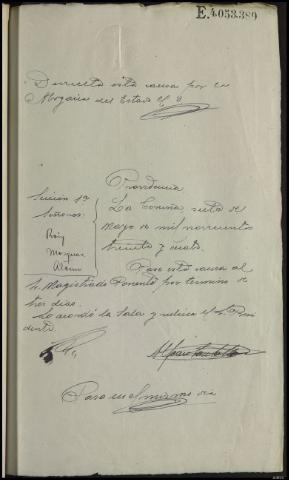 E.4053.389
Devuelta esta causa por el
Abogado del Estado
Providencia
Sección 1ª
Señores
Roig
Marquez
Alamo
La Coruña siete de
Mayo de mil novecientos
treinta y cuatro.
Pase esta causa al
Sr. Magistrado Ponente por termino de
tres dias.
Lo acordó la Sala y rubrica el Sr. Presi
dente.
Pasa en el mismo dia